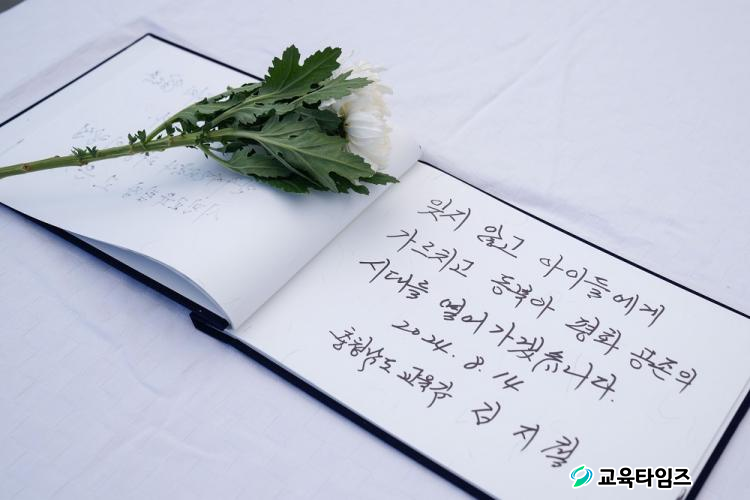 잊지 않고 아이들에게
가르치고 동북아 평화 공존의
시대를 열어가겠습니다.
2024. 8. 14
충청남도교육감 김지철
교육타임즈